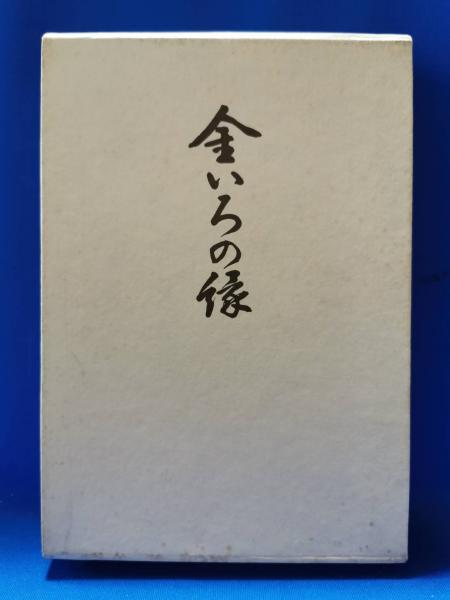 金いろの縁